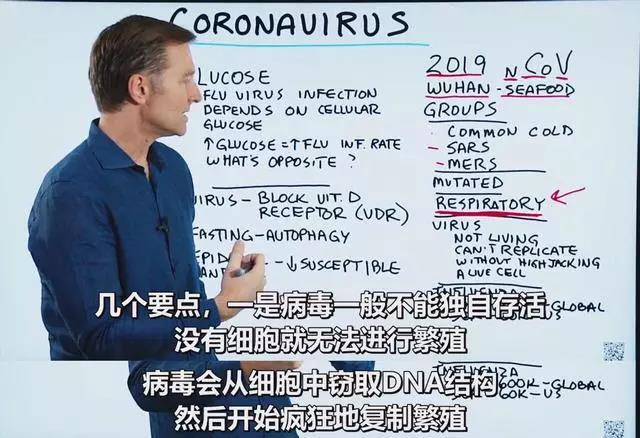 CORONAVIRUS
LUCOSE
FLU VIRUS INFECTION
DEPENDS ON CELLULAR
GLUCOSE
↑GLUCOSE=↑FLU INF. RATE
WHAT'S OPPOSITE ?
VIRUS - BLOCK VIT. D
RECEPTOR (VDR)
FASTING - AUTOPHAGY
- ↓SUSCEPTIBLE
2019 NCOV
WUHAN - SEAFOOD
GROUPS
· COMMON COLD
- SARS
- MERS
MUTATED
RESPIRATORY
VIRUS
NOT LIVING
CAN'T REPLICATE
WITHOUT HIGHJACKING
A LIVE CELL
-GLOBAL
几个要点，一是病毒一般不能独自存活
没有细胞就无法进行繁殖
600K-GLOBAL
60K-US
病毒会从细胞中窃取DNA结构
然后开始疯狂地复制繁殖